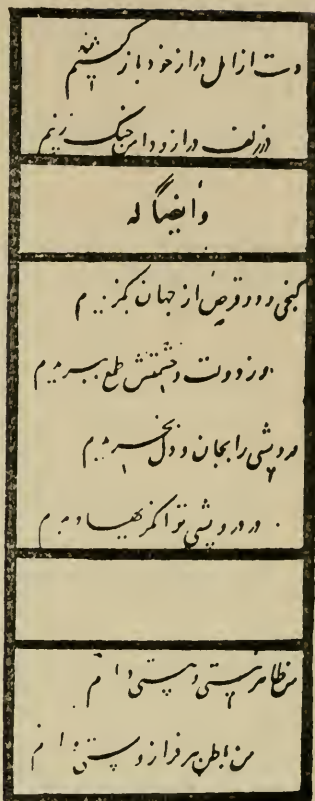 دست از امل دراز خود باز کشیم
در زلف دراز و دامن چنگ زنیم
وایضاً له
کنجی و دو قرص از جهان بگزیدیم
وز دولت و حشمتش طمع ببریدیم
درویشی را بجان و دل بخریدیم
در درویشی توانگریها دیدیم
من ظاهر نیستی و هستی دانم
من باطن هر فراز و پستی دانم